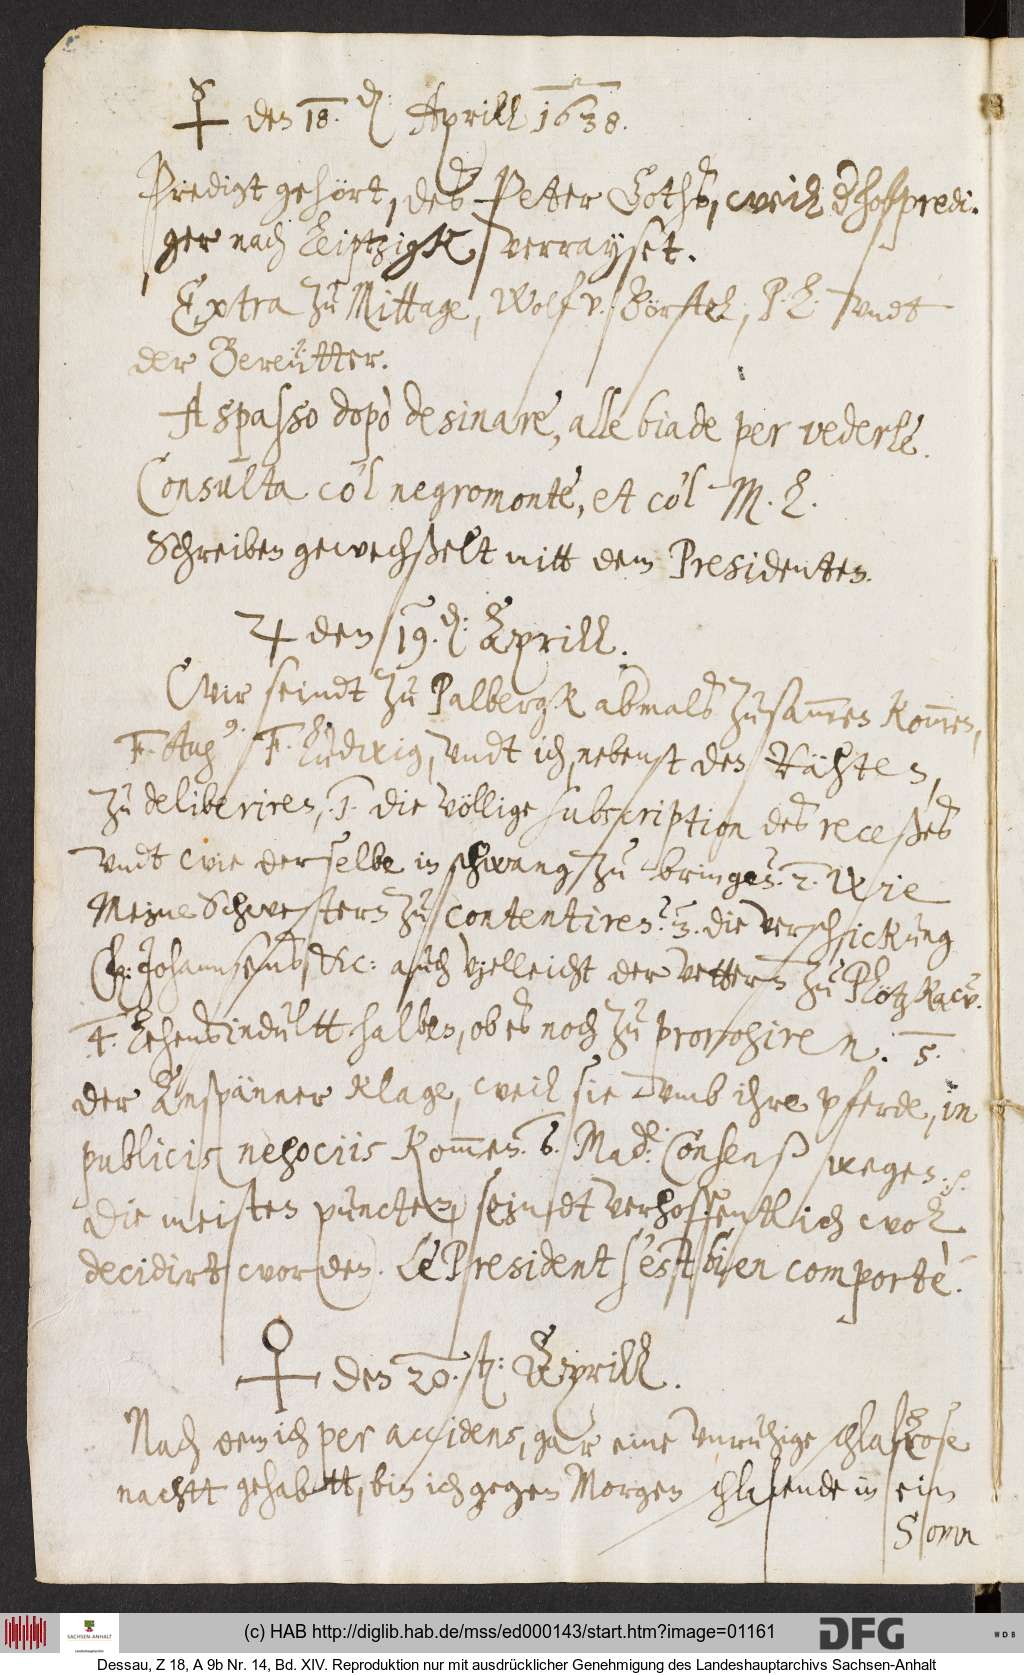 ☿ den 18. d: Aprill 1638.
Predigt gehört, des Peter Goths, weil d hoffpredi-
ger nach Leiptzigk verrayset.
Extra zu Mittage, Wolf v. Börstel, P. L. vndt
der Bereütter.
A spasso dopò desinare, alle biade per vederle.
Consulta còl negromonte, et còl M. L.
Schreiben gewechßelt mitt dem Presidenten.
♃ den 19. d: Aprill.
Wir seindt zu Palbergk abmals zusam̅en kom̅en,
F. Aug9. F. Ludwig, vndt ich, nebenst den Rähten,
zu deliberiren, 1. die völlige subscription des receßes
vndt wie derselbe in schwang zu bringen. 2. Wie
Meine Schwestern zu contentiren? 3. die verschickung
Johannsens, &c: auch vielleicht der vettern zu Plötzkaw.
4. Lehensindultt halben, ob es noch zu prorogiren. 5.
der Anspänner klage, weil sie vmb ihre pferde, in
publicis negociis kom̅en. 6. Mad: Consenß wegen.
die meisten puncten, seindt verhoffentlich wol
decidirt worden. Le President s'est bien comporté.
♀ den 20. st: Aprill.
Nach dem ich per accidens, gar eine vnruhige schlaflose
nachtt gehabtt, bin ich gegen Morgen schlafende in ein
Som̅
(c) HAB http://diglib.hab.de/mss/ed000143/start.htm?image=01161
SACHSEN-ANHALT
DFG
WDB
Dessau, Z 18, A 9b Nr. 14, Bd. XIV. Reproduktion nur mit ausdrücklicher Genehmigung des Landeshauptarchivs Sachsen-Anhalt